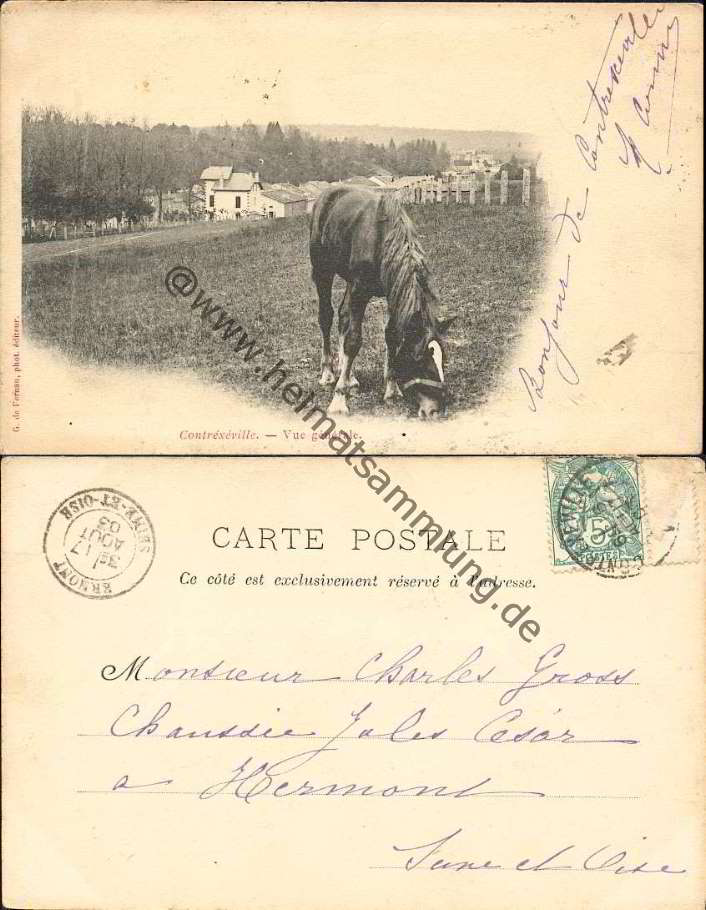 Bonjour de Contrexeville
G. de Fernan, phot. éditeur.
Contréxéville. — Vue générale.
@www.heimatsammlung.de
SEINE-ET-OISE
3E/17
AOUT
03
ERMONT
CARTE POSTALE
Ce côté est exclusivement réservé à l'adresse.
Monsieur Charles Gross
Chaussée Jules César
a Hermont
Seine et Oise
5